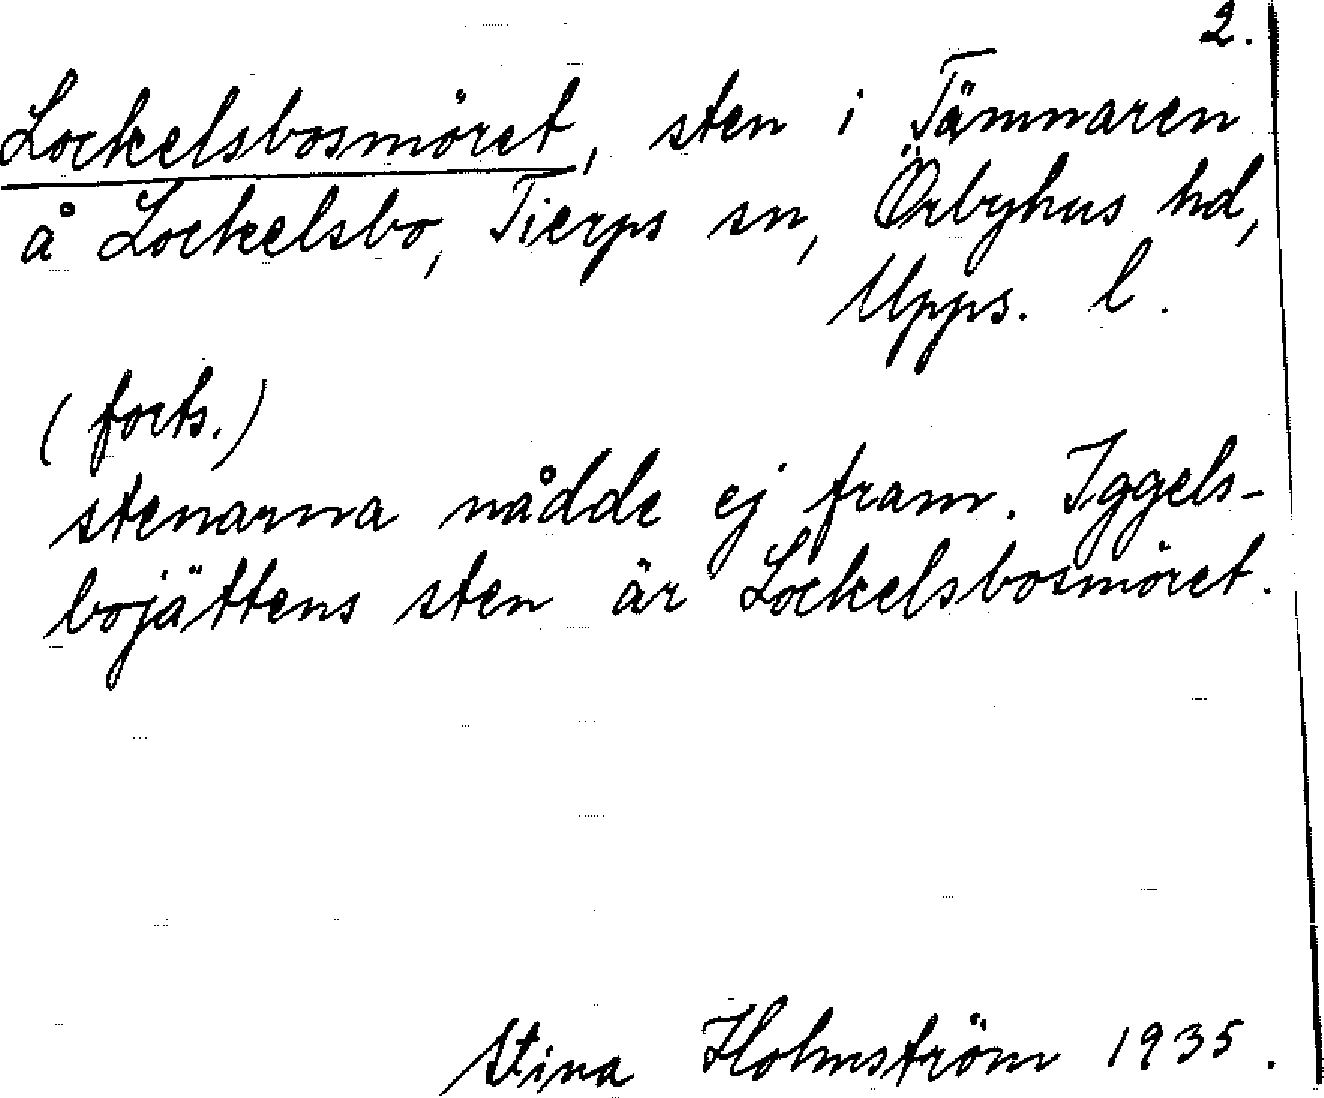 2.
Lockelsbosmöret, sten i Tämnaren
å Lockelsbo, Tierps sn, Örbyhus hd,
Upps. l.
(forts.)
stenarna nådde ej fram. Iggels-
bojättens sten är Lockelsbosmöret.
Stina Holmström 1935.